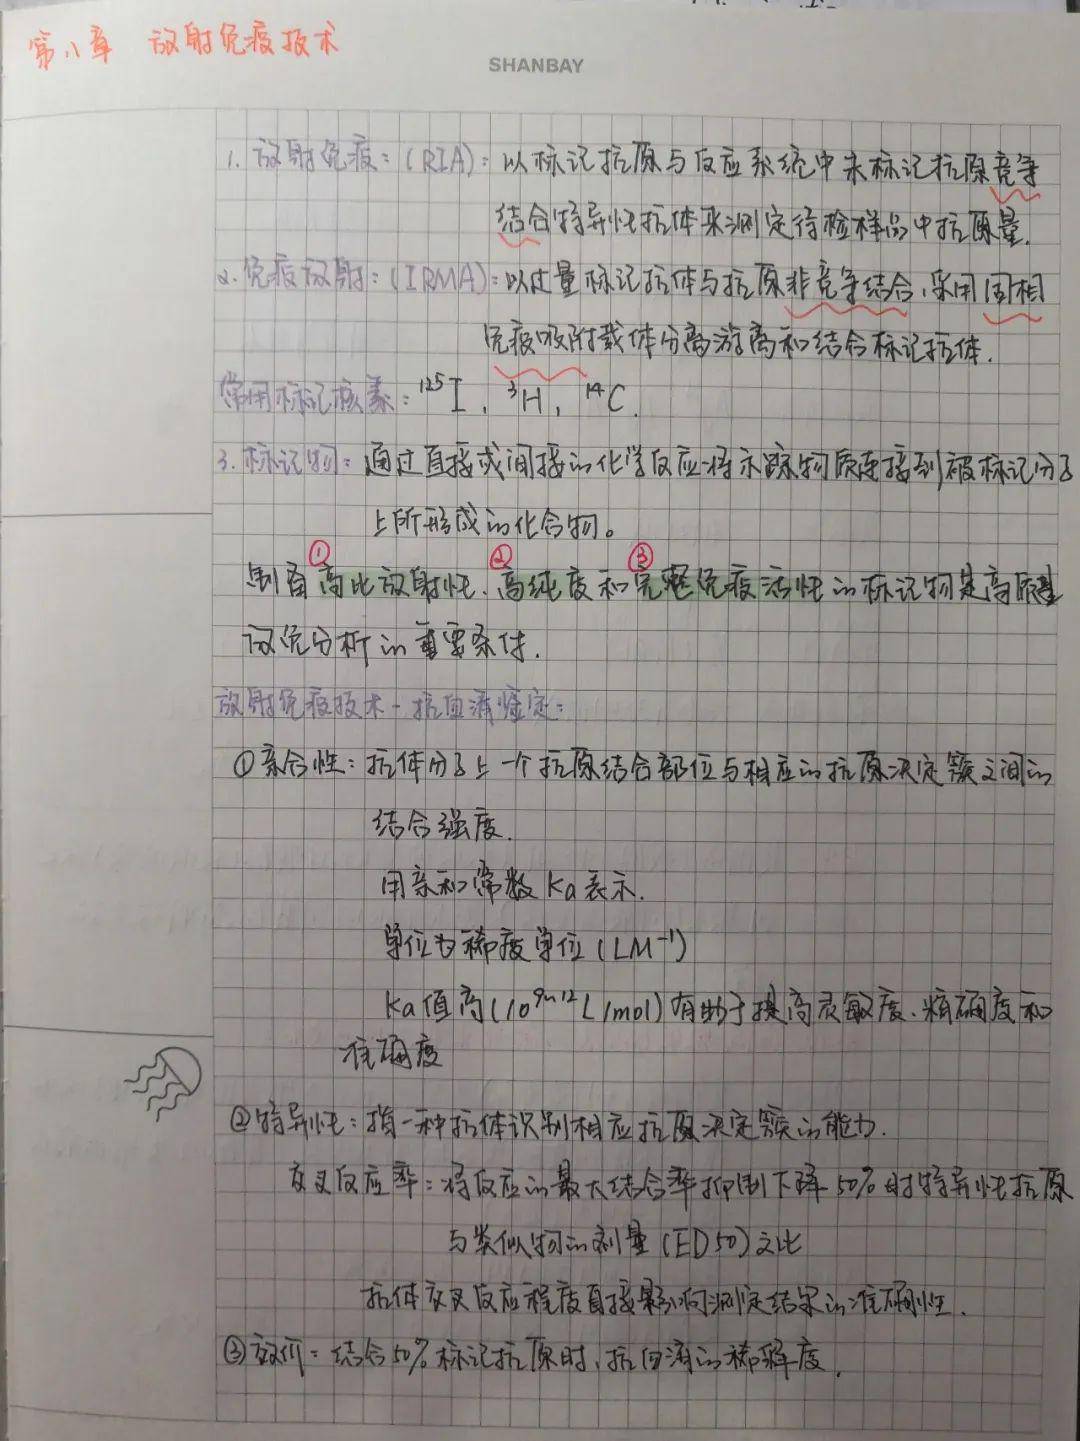 第八章 放射免疫技术
SHANBAY
1. 放射免疫：(RIA)：以标记抗原与反应系统中未标记抗原竞争
结合特异性抗体来测定待检样品中抗原量.
2. 免疫放射：(IRMA)：以过量标记抗体与抗原非竞争结合，采用固相
免疫吸附载体分离游离和结合标记抗体.
常用标记核素：¹²⁵I、³H、¹⁴C.
3. 标记物：通过直接或间接的化学反应将示踪物质连接到被标记分子
上所形成的化合物。
① ② ③
制备高比放射性、高纯度和完整免疫活性的标记物是高质量
放免分析的重要条件.
放射免疫技术-抗血清鉴定：
①亲合性：抗体分子上一个抗原结合部位与相应的抗原决定簇之间的
结合强度.
用亲和常数Ka表示.
单位为稀度单位(LM⁻¹)
Ka值高(10⁹~¹²L/mol)有助于提高灵敏度、精确度和
准确度
②特异性：指一种抗体识别相应抗原决定簇的能力.
交叉反应率：将反应的最大结合率抑制下降50%时特异性抗原
与类似物的剂量(ED50)之比
抗体交叉反应程度直接影响测定结果的准确性.
③效价：结合50%标记抗原时，抗血清的稀释度.